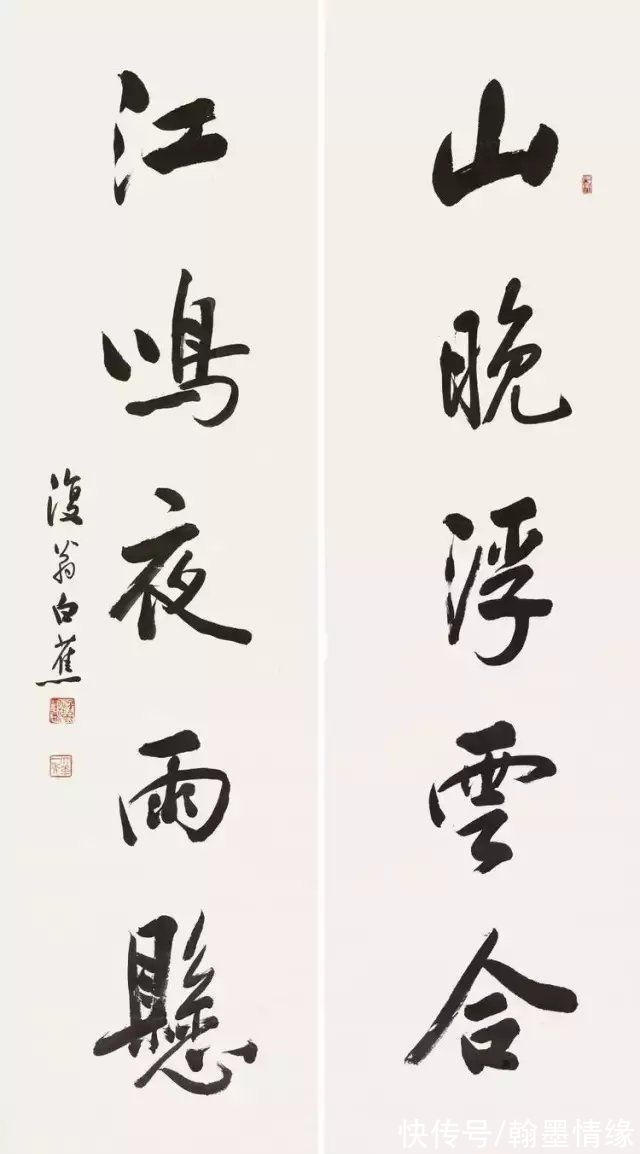 山晚浮雲合
江鳴夜雨懸
復翁白蕉
快传号/翰墨情缘